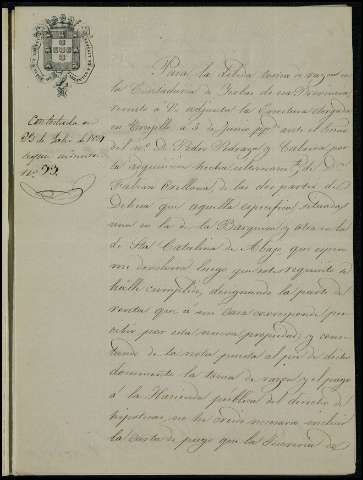 Contestada en
23 de Julio de
nº 22
Para la debida toma de razon en
la Contaduria de de esa Provincia
remito a V. adjunta la Escritura otorgada
en Trujillo a 3 de Junio ante el Escno
del nº D. Pedro Pedraza y Cabrera por
la adquisicion hecha de D.
Fabian Orellana de las dos partes de
Dehesa que aquella especifica, situada
una en la de la y otra en la
de Sta Catalina de Abajo, que espero
me devolvera luego que este requisito se
halle cumplido, designando la parte de
renta que a mi Casa corresponde per
cibir por esta nueva propiedad, y cons
tando de la nota puesta al pie de dicho
documento la toma de razon y el pago
á la Hacienda publica del derecho de
hipotecas, no he creido necesario incluir
la carta de pago que la Tesoreria de